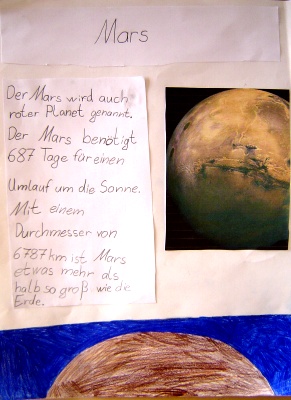 Mars
Der Mars wird auch
roter Planet genannt.
Der Mars benötigt
687 Tage für einen
Umlauf um die Sonne.
Mit einem
Durchmesser von
6787 km ist Mars
etwas mehr als
halb so groß wie die
Erde.